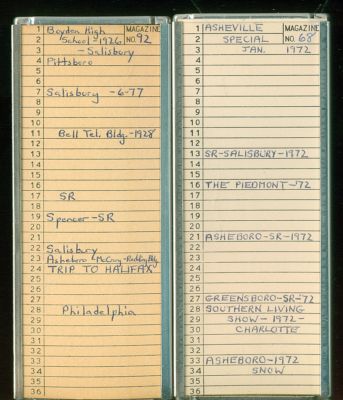 1 Boyden High MAGAZINE
2 School-1926 NO. 92
3 -Salisbury
4 Pittsboro
5
6
7 Salisbury -6-77
8
9
10
11 Bell Tel. Bldg.-1928
12
13
14
15
16
17 SR
18
19 Spencer-SR
20
21
22 Salisbury
23 Asheboro-McCrary-Redding Bldg
24 TRIP TO HALIFAX
25
26
27
28 Philadelphia
29
30
31
32
33
34
35
36
1 ASHEVILLE MAGAZINE
2 SPECIAL NO. 68
3 JAN. 1972
4
5
6
7
8
9
10
11
12
13 SR-SALISBURY-1972
14
15
16 THE PIEDMONT-72
17
18
19
20
21 ASHEBORO-SR-1972
22
23
24
25
26
27 GREENSBORO-SR-72
28 SOUTHERN LIVING
29 SHOW-1972-
30 CHARLOTTE
31
32
33 ASHEBORO-1972
34 SNOW
35
36